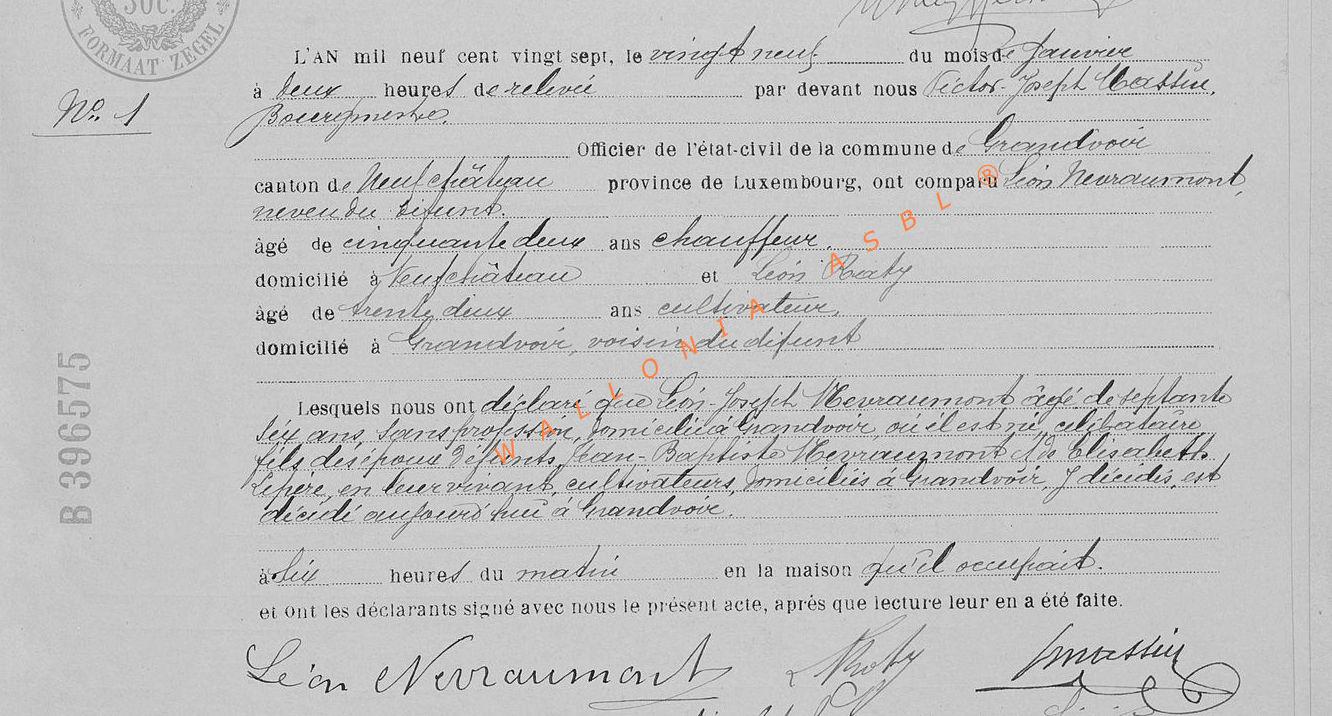 50c.
FORMAAT ZEGEL
L'AN mil neuf cent vingt sept, le vingt neuf du mois de Janvier
N° 1
à deux heures de relevée par devant nous Victor-Joseph Massin,
Bourgmestre.
Officier de l'état-civil de la commune de Grandvoir
canton de Neufchâteau province de Luxembourg, ont comparu Léon Nevraumont,
neveu du défunt.
âgé de cinquante deux ans chauffeur.
domicilié à Neufchâteau et Léon Raty
âgé de trente deux ans cultivateur,
domicilié à Grandvoir, voisin du défunt
B 396575
Lesquels nous ont déclaré que Léon-Joseph Nevraumont âgé de septante
six ans, sans profession, domicilié à Grandvoir, où il est né, célibataire
fils des époux défunts, Jean-Baptiste Nevraumont et de Elisabeth
Lepère, en leur vivant, cultivateurs, domiciliés à Grandvoir, y décédés, est
décédé aujourd'hui à Grandvoir.
à six heures du matin en la maison qu'il occupait.
et ont les déclarants signé avec nous le présent acte, après que lecture leur en a été faite.
Léon Nevraumont LRaty Jmassin
WALLONIA ASBL ®